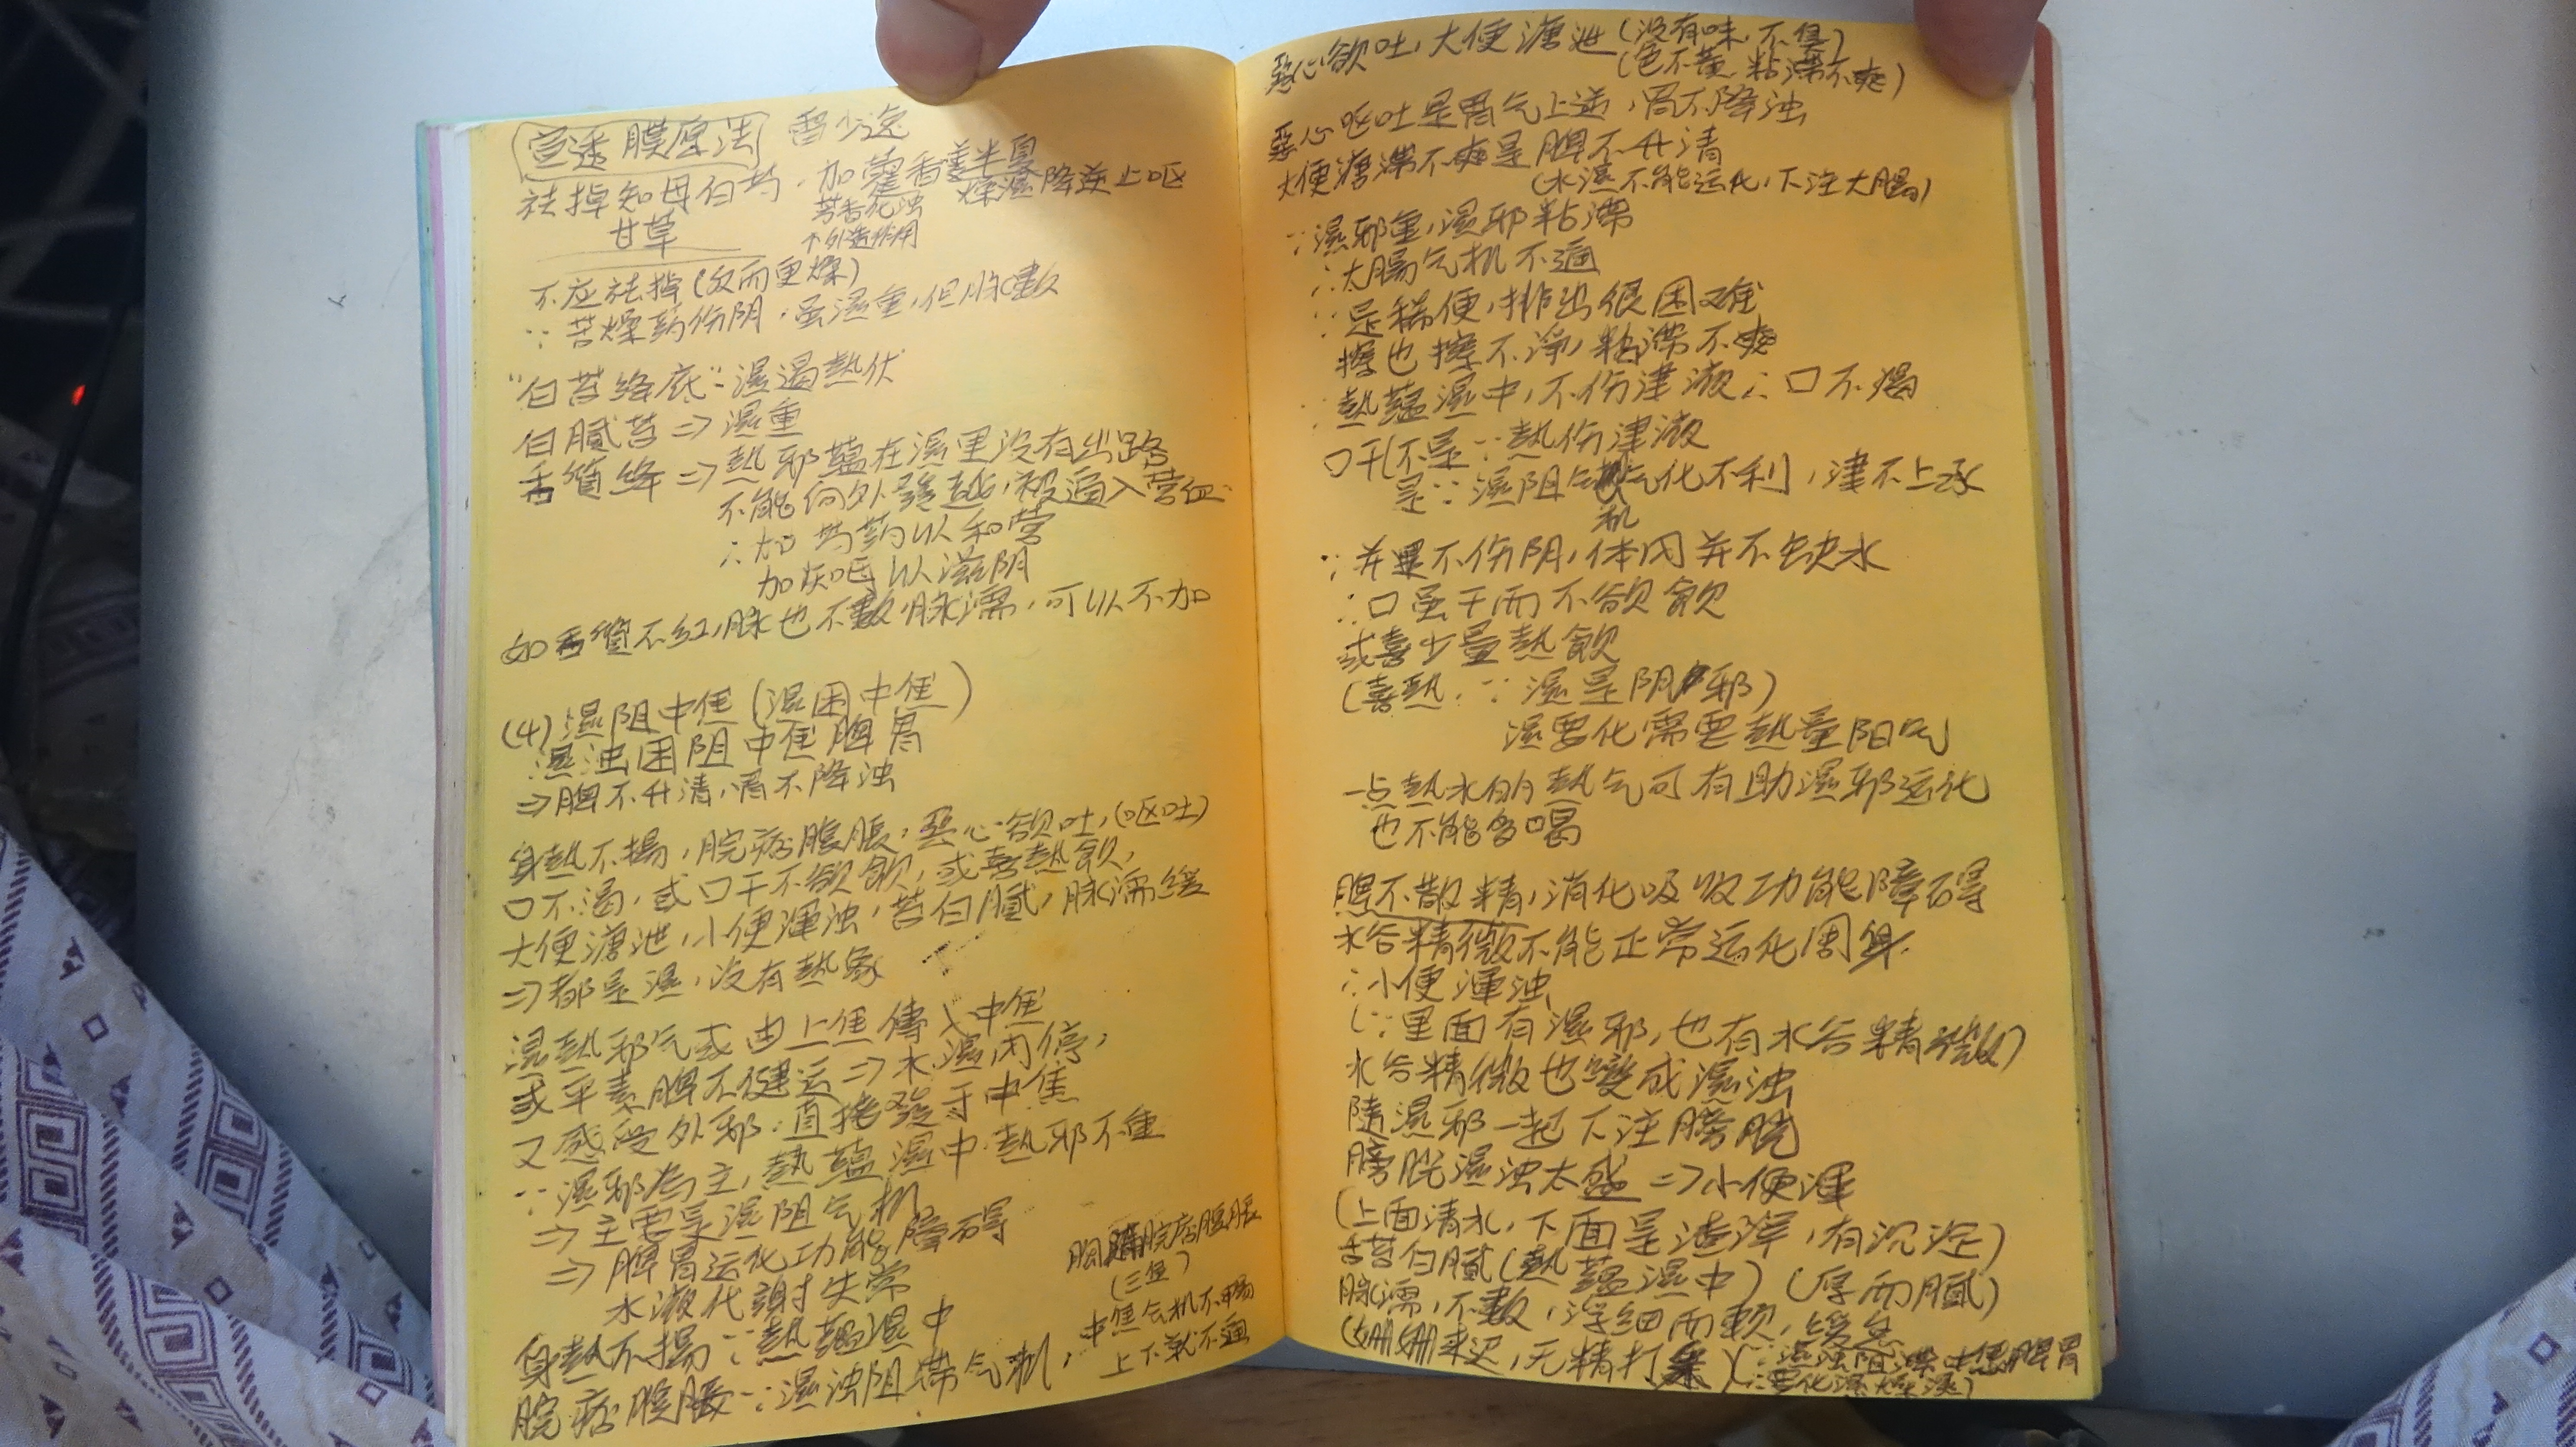 宣透膜原法 雷少逸
祛掉知母白芍. 加藿香姜半夏
甘草
燥湿降逆止呕
芳香化浊
不应祛掉(反而更燥)
∵苦燥药伤阴.虽湿重,但脉数
"白苔绛底"∵湿遏熱伏
白腻苔⇒湿重
舌質绛⇒熱邪蘊在湿里没有出路
不能向外發越,被逼入营血
∴加芍药以和营
加灰呕以滋阴
如舌質不红,脉也不數,脉濡,可以不加
(4)湿阻中焦(湿困中焦)
湿浊困阻中焦脾胃
⇒脾不升清,胃不降浊
身熱不揚,脘痞腹脹,恶心欲吐,(呕吐)
口不渴,或口干不欲飲,或喜熱飲,
大便溏泄,小便渾浊,苔白腻,脉濡缓
⇒都是湿,没有熱象
湿熱邪气或由上焦傳入中焦
或平素脾不健运⇒水湿内停,
又感受外邪.直接發于中焦
∵湿邪為主,熱蘊湿中.熱邪不重
⇒主要是湿阻气机
⇒脾胃运化功能障碍
水液代謝失常
身熱不揚∵熱蘊湿中
脘痞腹脹∵湿浊阻滞气机,
胸脘痞腹脹
(三焦)
中焦气机不暢
上下就不通
恶心欲吐,大便溏泄(没有味,不臭)
(色不黄.粘滞不爽)
恶心呕吐是胃气上逆,胃不降浊
大便溏滞不爽是脾不升清
(水湿不能运化,下注大腸)
∵湿邪重,湿邪粘滞
∴大腸气机不通
∵是稀便,排出很困难
擦也擦不淨,粘滞不爽
∵熱蘊湿中,不伤津液∴口不渴
口干(不是∵熱伤津液
是∵湿阻气机气化不利,津不上承
∵并不伤阴,体内并不缺水
∴口虽干而不欲飲
或喜少量熱飲
(喜熱.∵湿是阴邪)
湿要化需要熱量阳气
一点熱水的熱气可有助湿邪运化
也不能多喝
脾不散精,消化吸收功能障碍
水谷精微不能正常运化周身.
∴小便渾浊
(∵里面有湿邪,也有水谷精微)
水谷精微也變成湿浊
随湿邪一起下注膀胱
膀胱湿浊太盛⇒小便渾
(上面清水,下面是渣滓,有沉淀)
舌苔白腻(熱蘊湿中)(厚而腻)
脉濡,不數,浮细而軟,缓怠
(姗姗来迟,无精打采)(∵湿浊阻滞中焦脾胃